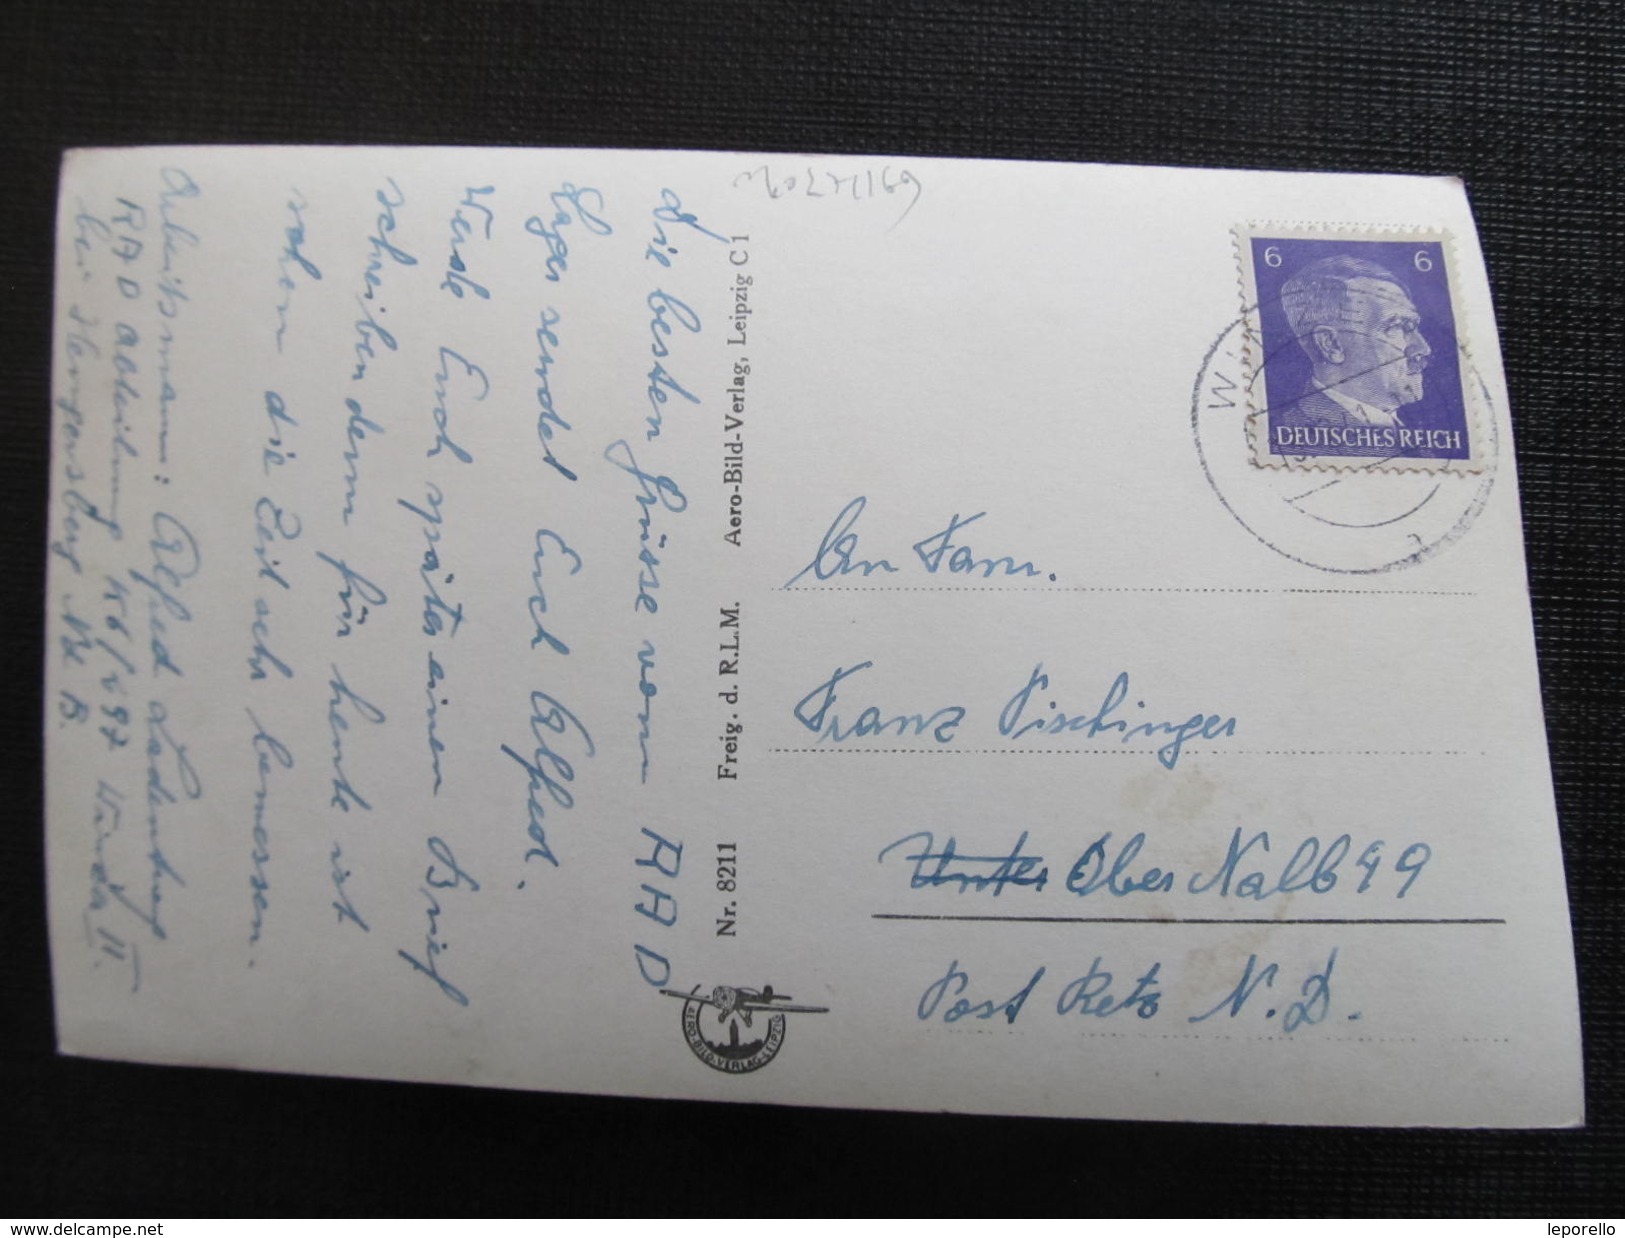 Die besten Grüsse vom RAD
Lager sendet Euch Alfred.
Werde Euch später einen Brief
schreiben denn für heute ist
schon die Zeit sehr bemessen.
Arbeitsmann: Alfred
RAD Abteilung K6/ 97 II.
bei Hengersberg Ndb B.
Nr. 8211 Freig. d. R.L.M. Aero-Bild-Verlag, Leipzig C 1
AERO-BILD-VERLAG-LEIPZIG
6 6
DEUTSCHES REICH
An Fam.
Franz Pischinger
Unter Ober Nalb 49
Post Retz N.D.
leporello
www.delcampe.net